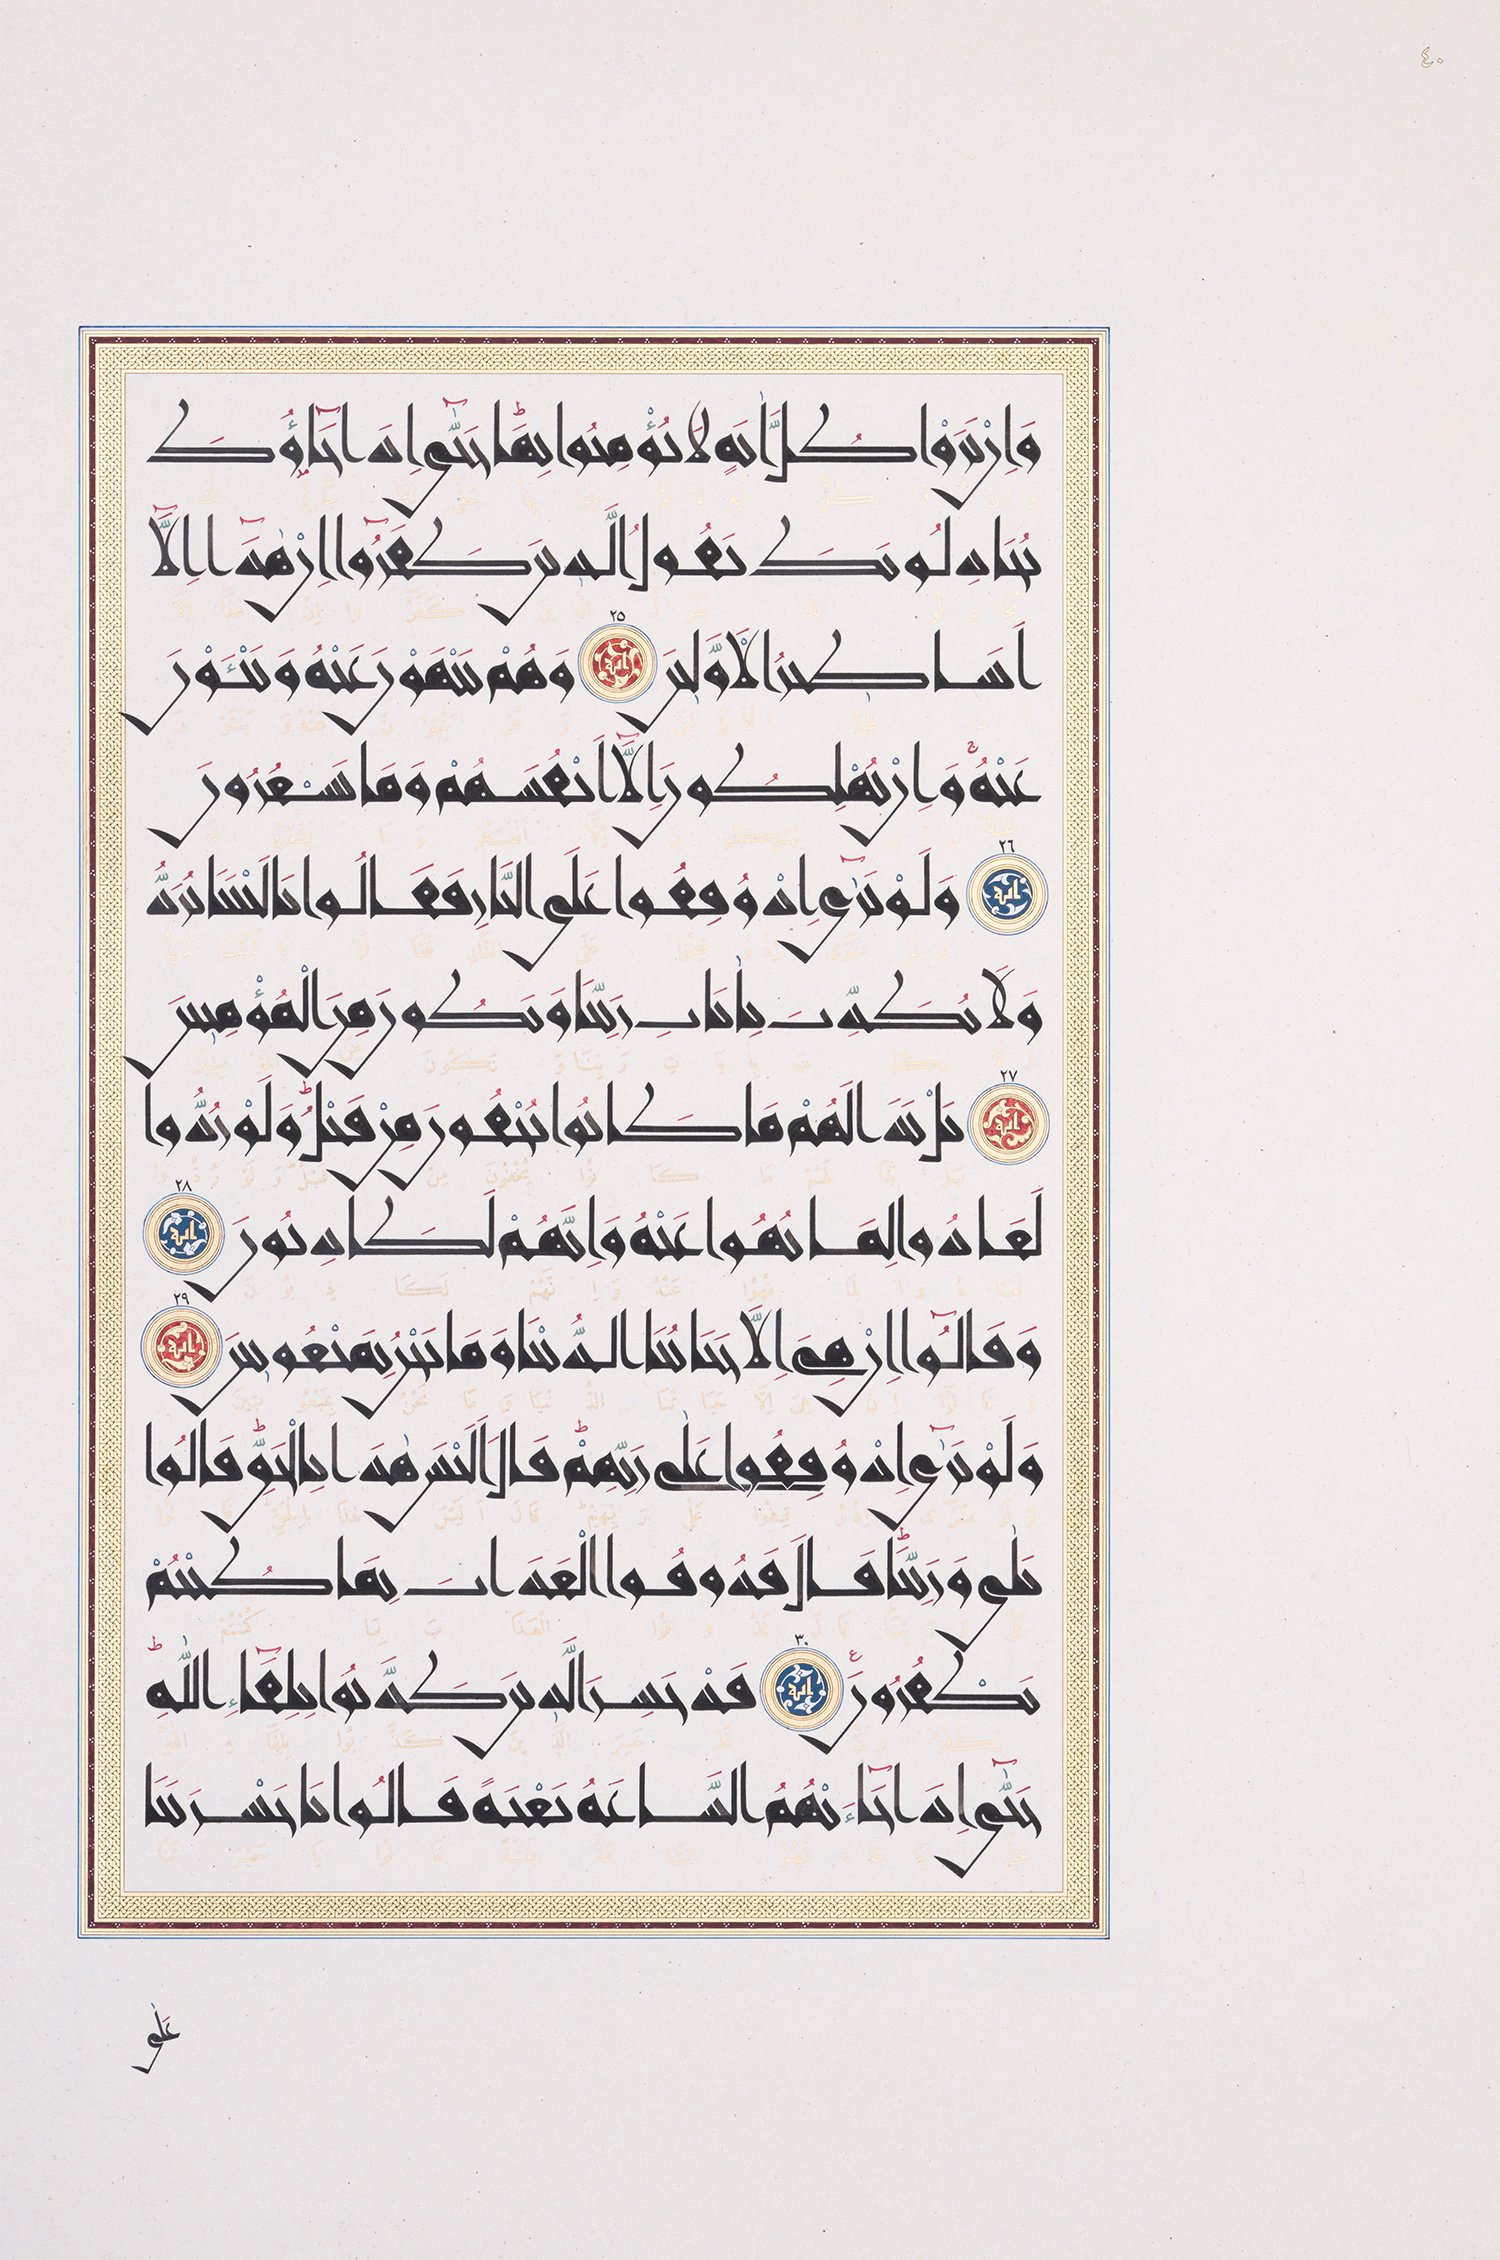 ٤٠
وَاِنْ يَرَوْا كُلَّ اٰيَةٍ لَا يُؤْمِنُوا بِهَاۜ حَتّٰٓى اِذَا جَٓاؤُكَ
يُجَادِلُونَكَ يَقُولُ الَّذِينَ كَفَرُٓوا اِنْ هٰذَٓا اِلَّٓا
اَسَاطِيرُ الْاَوَّلِينَ ٢٥ وَهُمْ يَنْهَوْنَ عَنْهُ وَيَنْـَٔوْنَ
عَنْهُۚ وَاِنْ يُهْلِكُونَ اِلَّٓا اَنْفُسَهُمْ وَمَا يَشْعُرُونَ
٢٦ وَلَوْ تَرٰٓى اِذْ وُقِفُوا عَلَى النَّارِ فَقَالُوا يَا لَيْتَنَا نُرَدُّ
وَلَا نُكَذِّبَ بِاٰيَاتِ رَبِّنَا وَنَكُونَ مِنَ الْمُؤْمِنِينَ
٢٧ بَلْ بَدَا لَهُمْ مَا كَانُوا يُخْفُونَ مِنْ قَبْلُۜ وَلَوْ رُدُّوا
لَعَادُوا لِمَا نُهُوا عَنْهُ وَاِنَّهُمْ لَكَاذِبُونَ ٢٨
وَقَالُٓوا اِنْ هِيَ اِلَّا حَيَاتُنَا الدُّنْيَا وَمَا نَحْنُ بِمَبْعُوثِينَ ٢٩
وَلَوْ تَرٰٓى اِذْ وُقِفُوا عَلٰى رَبِّهِمْۜ قَالَ اَلَيْسَ هٰذَا بِالْحَقِّۜ قَالُوا
بَلٰى وَرَبِّنَاۜ قَالَ فَذُوقُوا الْعَذَابَ بِمَا كُنْتُمْ
تَكْفُرُونَ ٣٠ قَدْ خَسِرَ الَّذِينَ كَذَّبُوا بِلِقَٓاءِ اللّٰهِۜ
حَتّٰٓى اِذَا جَٓاءَتْهُمُ السَّاعَةُ بَغْتَةً قَالُوا يَا حَسْرَتَنَا
عَلٰى